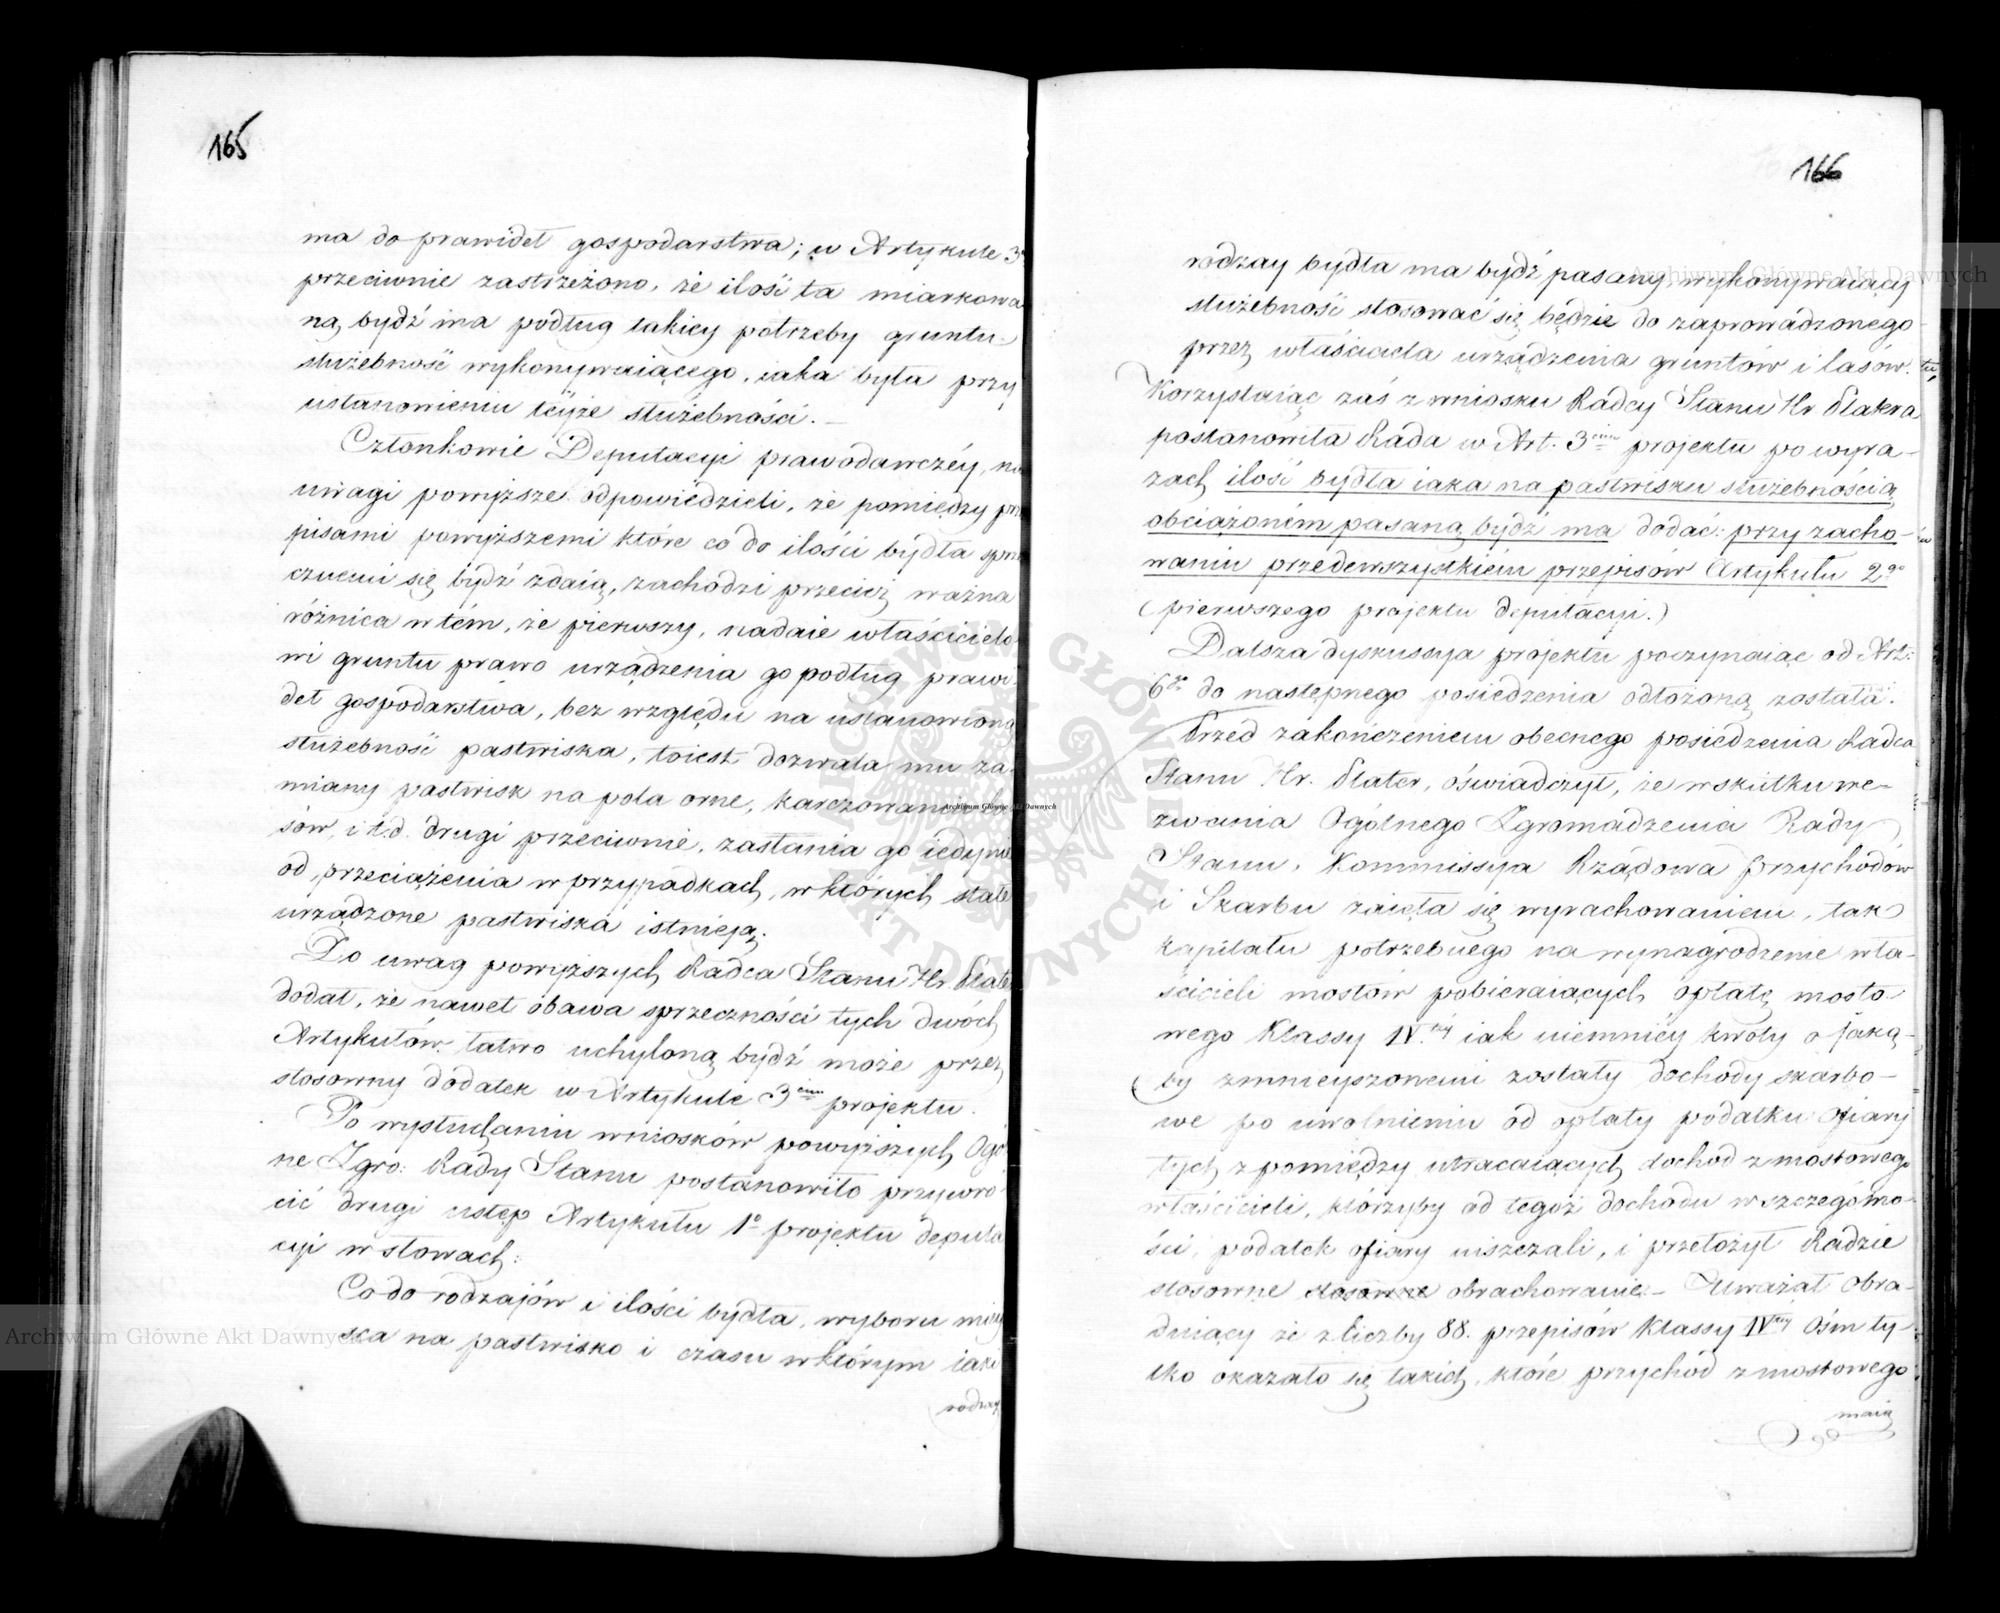 165
ma do prawideł gospodarstwa; w Artykule 3
przeciwnie zastrzeżono, że ilość ta miarkowa
ną bydź ma podług takiey potrzeby gruntu
służebność wykonywaiącego, iaka była przy
ustanowieniu téyże służebności. —
Członkowie Deputacyi prawodawczéy, na
uwagi powyższe odpowiedzieli, że pomiędzy prze
pisami powyższemi które co do ilości bydła sprze
cznemi się bydź zdaią, zachodzi przecież ważna
różnica w tém, że pierwszy, nadaie właścicielo
wi gruntu prawo urządzenia go podług prawi
deł gospodarstwa, bez względu na ustanowioną
służebność pastwiska, toiest dozwala mu za
miany pastwisk na pola orne, karczowania la
sów, i t.d. drugi przeciwnie, zasłania go iedynie
od przeciążenia w przypadkach, w których stale
urządzone pastwiska istnieją.
Do uwag powyższych Radca Stanu Hr. Plater
dodał, że nawet obawa sprzeczności tych dwóch
Artykułów łatwo uchyloną bydź może przez
stosowny dodatek w Artykule 3cim projektu.
Po wysłuchaniu wniosków powyższych Ogó
ne Zgro: Rady Stanu postanowiło przywró
cić drugi ustęp Artykułu 1o projektu deputa
cyi w słowach:
Co do rodzajów i ilości bydła, wyboru miey
sca na pastwisko i czasu w którym iaki
rodzay
166
rodzay bydła ma bydź pasany, wykonywaiący
służebność stosować się będzie do zaprowadzonego
przez właściciela urządzenia gruntów i lasów.
Korzystaiąc zaś z wniosku Radcy Stanu Hr Platera
postanowiła Rada w Art. 3cim projektu po wyra-
zach ilość bydła iaka na pastwisku służebnością
obciążoném pasaną bydź ma dodać: przy zacho-
waniu przedewszystkiém przepisów Artykułu 2go
(pierwszego projektu deputacyi.)
Dalsza dyskussya projektu poczynaiąc od Art:
6go do następnego posiedzenia odłożoną została.
Przed zakończeniem obecnego posiedzenia Radca
Stanu Hr. Plater, oświadczył, że wskutku we-
zwania Ogólnego Zgromadzenia Rady
Stanu, Kommissya Rządowa Przychodów
i Skarbu zaięła się wyrachowaniem, tak
kapitału potrzebnego na wynagrodzenie wła-
ścicieli mostów pobieraiących opłatę mosto
wego Klassy IV.téy iak niemniéy kwoty o jaką-
by zmnieyszonemi zostały dochody skarbo-
we po uwolnieniu od opłaty podatku Ofiary
tych z pomiędzy utracaiących dochód z mostowego
właścicieli, którzyby od tegoż dochodu w szczególno-
ści, podatek ofiary uiszczali, i przełożył Radzie
stosowne stosowne obrachowanie. — Uważał Obra-
duiący że z liczby 88. przepisów Klassy IVtéy Ośm ty-
lko okazało się takich, które przychód z mostowego
maią
Archiwum Główne Akt Dawnych
Archiwum Główne Akt Dawnych
Archiwum Główne Akt Dawnych
ARCHIWUM GŁÓWNE AKT DAWNYCH